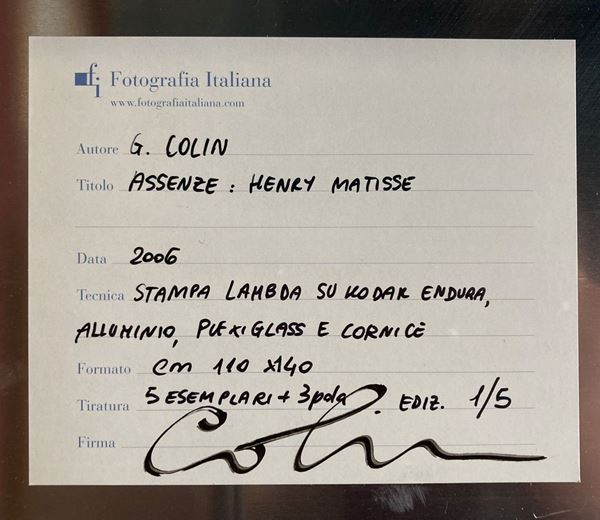 fi Fotografia Italiana
www.fotografiaitaliana.com
Autore G. COLIN
Titolo ASSENZE : HENRY MATISSE
Data 2006
Tecnica STAMPA LAMBDA SU KODAK ENDURA,
ALLUMINIO, PLEXIGLASS E CORNICE
Formato cm 110 x140
Tiratura 5 ESEMPLARI + 3 pda. EDIZ. 1/5
Firma Colin